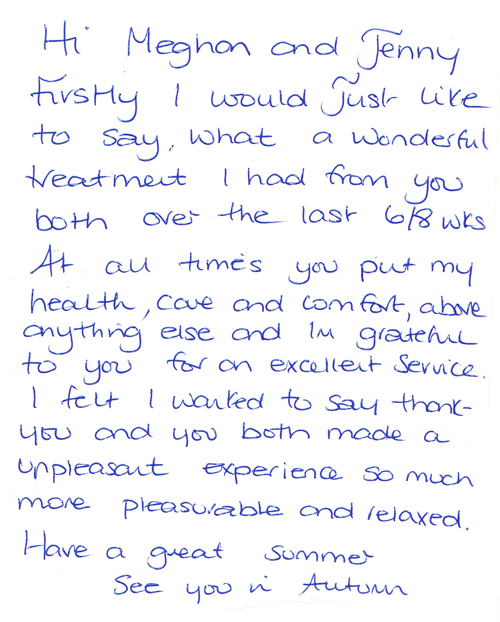 Hi Meghan and Jenny
Firstly I would Just like
to say, what a wonderful
treatment I had from you
both over the last 6/8 wks
At all times you put my
health, care and comfort, above
anything else and Im grateful
to you for an excellent Service.
I felt I wanted to say thank-
you and you both made a
unpleasant experience so much
more pleasurable and relaxed.
Have a great Summer
See you in Autumn